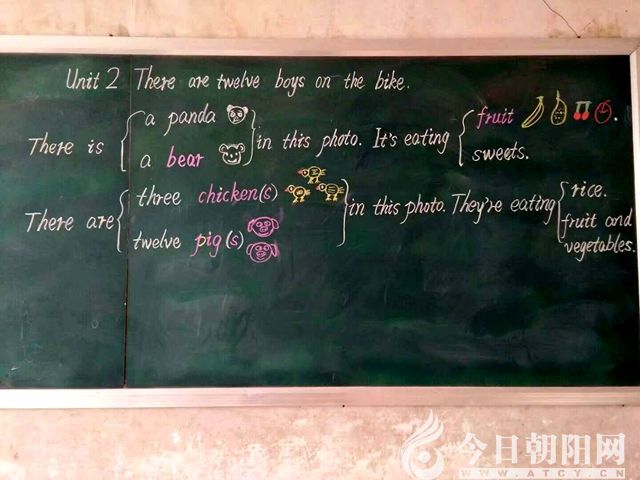 Unit 2 There are twelve boys on the bike.
There is { a panda } in this photo. It's eating { fruit .
a bear sweets.
There are { three chicken(s) } in this photo. They're eating { rice.
twelve pig(s) fruit and
vegetables.
今日朝阳网
WWW.ATCY.CN